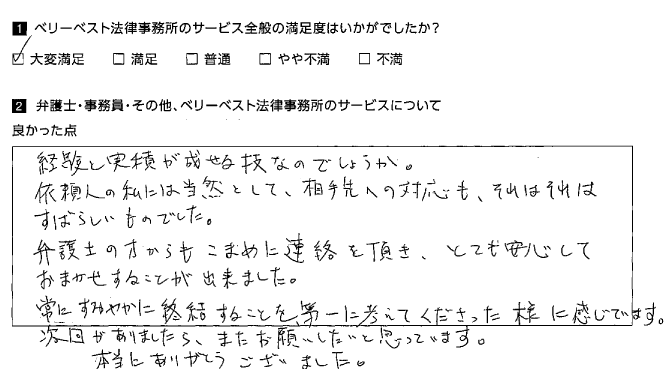 1 ベリーベスト法律事務所のサービス全般の満足度はいかがでしたか?
☑ 大変満足 □ 満足 □ 普通 □ やや不満 □ 不満
2 弁護士・事務員・その他、ベリーベスト法律事務所のサービスについて
良かった点
経験と実積が成せる技なのでしょうか。
依頼人の私には当然として、相手先への対応も、それはそれは
すばらしいものでした。
弁護士の方からもこまめに連絡を頂き、とても安心して
おまかせすることが出来ました。
常にすみやかに終結することを第一に考えてくださった様に感じています。
次回がありましたら、またお願いしたいと思っています。
本当にありがとうございました。